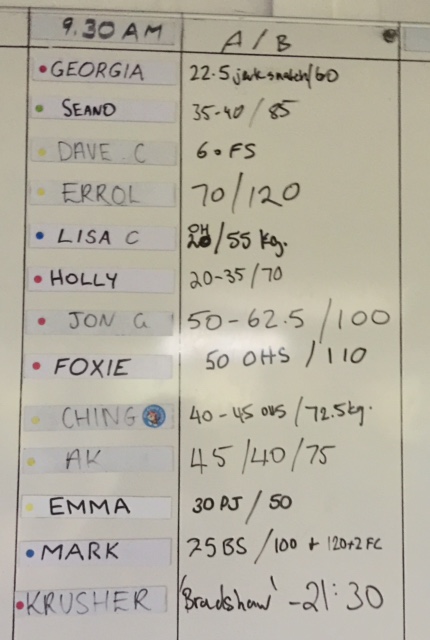 9.30 AM A/B
GEORGIA 22.5 jerk snatch/60
SEANO 35-40/85
DAVE C 60 FS
ERROL 70/120
LISA C OH 20/55 kg.
HOLLY 20-35/70
JON G 50-62.5/100
FOXIE 50 OHS/110
CHING 40-45 OHS/72.5kg.
AK 45/40/75
EMMA 30 PJ/50
MARK 75BS/100 + 120+2 FC
KRUSHER 'Bradshaw' -21:30